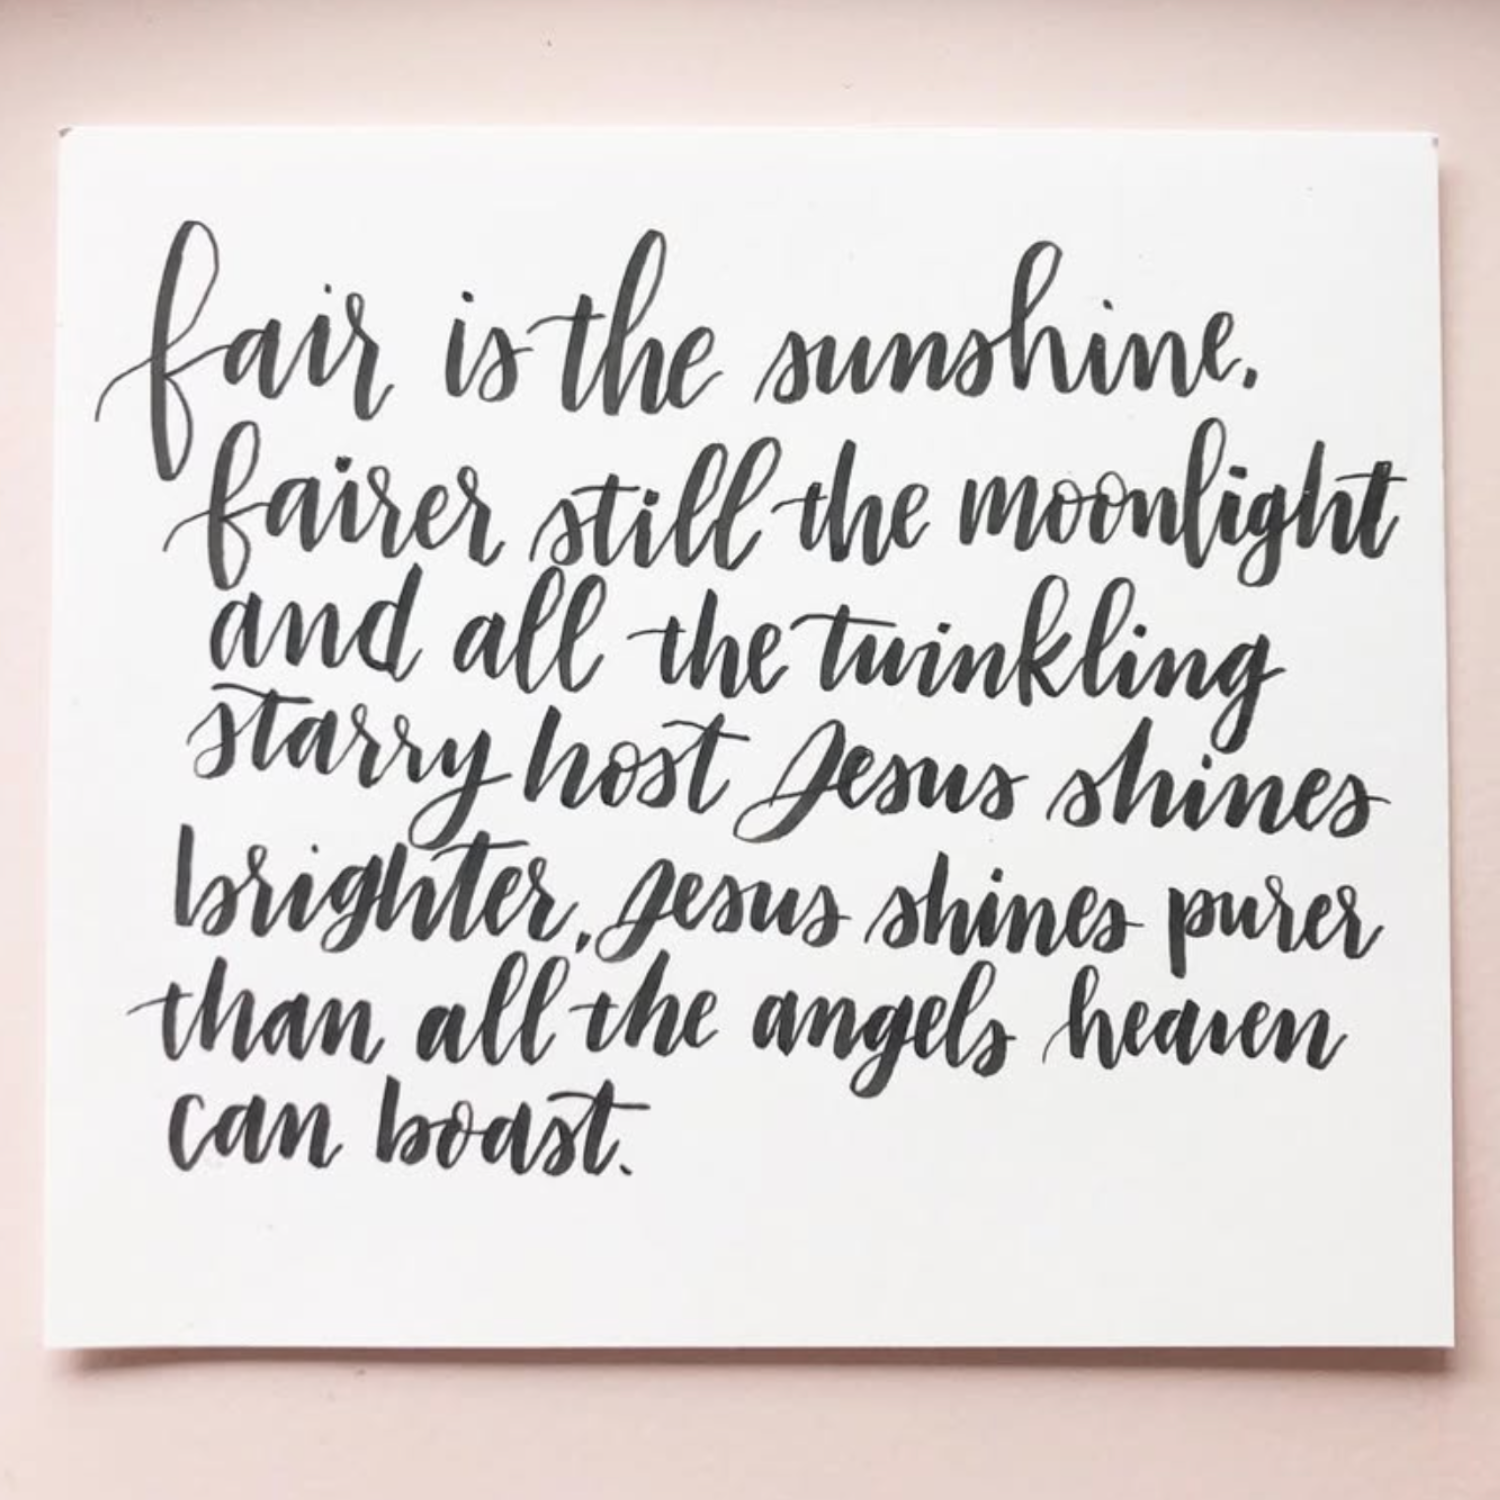 fair is the sunshine,
fairer still the moonlight
and all the twinkling
starry host Jesus shines
brighter, Jesus shines purer
than all the angels heaven
can boast.